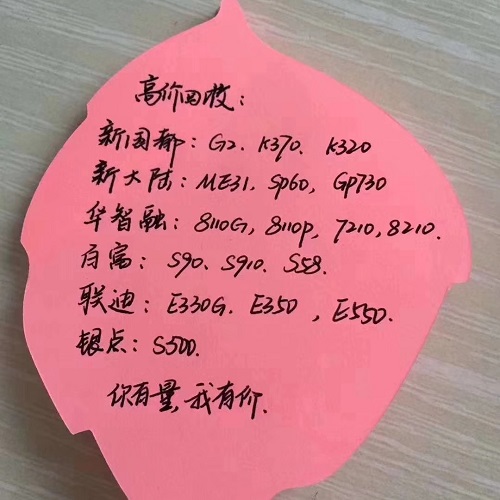 高价回收：
新国都：G2、K370、K320
新大陆：ME31、SP60，GP730
华智融：8110G，8110P，7210，8210.
百富：S90、S910、S58.
联迪：E330G、E350，E550.
银点：S500.
你有量，我有价.